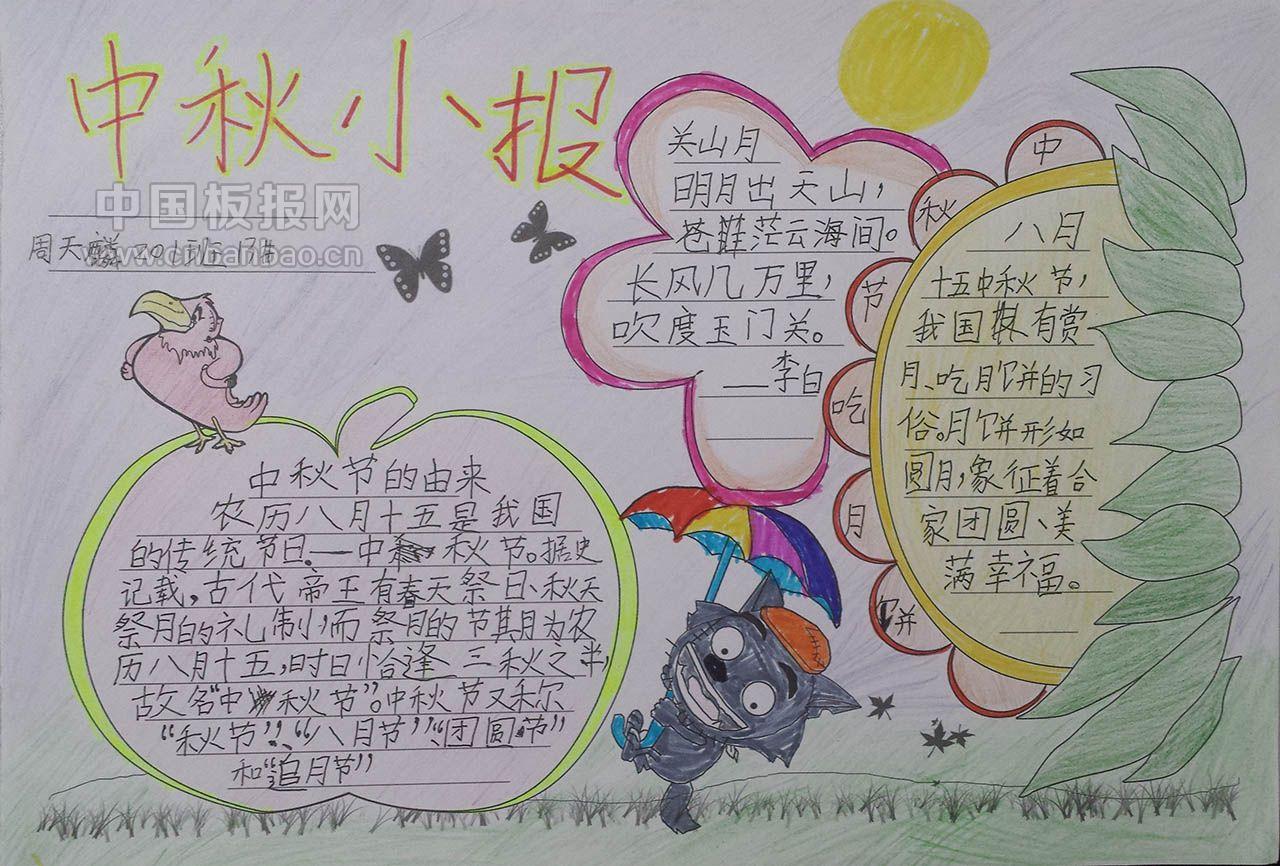 中秋小报
中国板报网
www.chinabanbao.cn
周天麟 201班 13#
关山月
明月出天山，
苍茫云海间。
长风几万里，
吹度玉门关。
——李白
中秋节吃月饼
八月
十五中秋节，
我国有赏
月、吃月饼的习
俗。月饼形如
圆月，象征着合
家团圆、美
满幸福。
中秋节的由来
农历八月十五是我国
的传统节日——中秋节。据史
记载，古代帝王有春天祭日、秋天
祭月的礼制，而祭月的节其月为农
历八月十五，时日恰逢三秋之半，
故名“中秋节”。中秋节又称
“秋节”、“八月节”、“团圆节”
和“追月节”